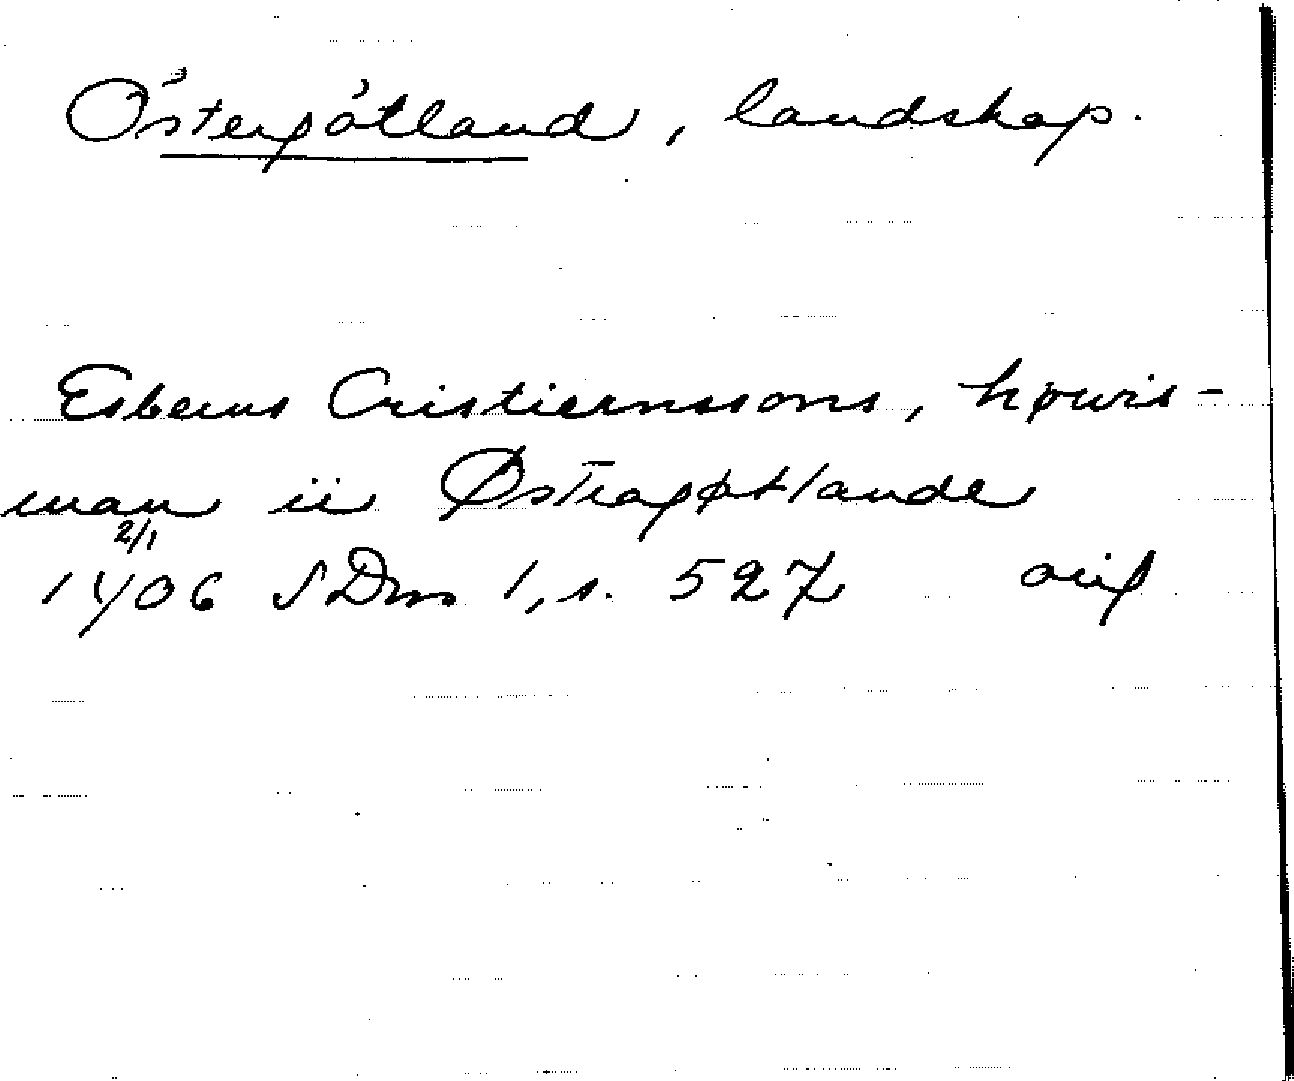 Östergötland, landskap.
Esberns Cristiernssons, høwis-
man ii Østragøtlande
2/1
1406 SDns 1, s. 527 orig